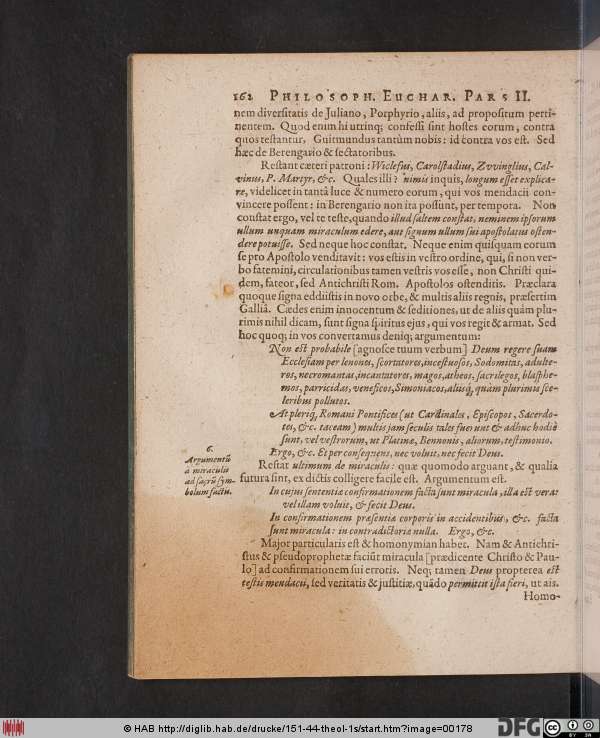 162 PHILOSOPH. EUCHAR. PARS II.
nem diversitatis de Juliano, Porphyrio, aliis, ad propositum perti-
nentem. Quod enim hi utrinq; confessi sint hostes eorum, contra
quos testantur, Guitmundus tantùm nobis: id contra vos est. Sed
hæc de Berengario & sectatoribus.
Restant cæteri patroni: Wiclefus, Carolstadius, Zvvinglius, Cal-
vinus, P. Martyr, &c. Quales illi? nimis inquis, longum esset explica-
re, videlicet in tantâ luce & numero eorum, qui vos mendacii con-
vincere possent: in Berengario non ita possunt, per tempora. Non
constat ergo, vel te teste, quando illud saltem constat, neminem ipsorum
ullum unquam miraculum edere, aut signum ullum sui apostolatus osten-
dere potuisse. Sed neque hoc constat. Neque enim quisquam eorum
se pro Apostolo venditavit: vos estis in vestro ordine, qui, si non ver-
bo fatemini, circulationibus tamen vestris vos esse, non Christi qui-
dem, fateor, sed Antichristi Rom. Apostolos ostenditis. Præclara
quoque signa eddiistis in novo orbe, & multis aliis regnis, præsertim
Galliâ. Cædes enim innocentum & seditiones, ut de aliis quàm plu-
rimis nihil dicam, sunt signa spiritus ejus, qui vos regit & armat. Sed
hoc quoq; in vos convertamus deniq; argumentum:
Non est probabile [agnosce tuum verbum] Deum regere suam
Ecclesiam per lenones, scortatores, incestuosos, Sodomitas, adulte-
ros, necromantas, incantatores, magos, atheos, sacrilegos, blasphe-
mos, parricidas, veneficos, Simoniacos, aliisq; quàm plurimis sce-
leribus pollutos.
At pleriq; Romani Pontifices (ut Cardinales, Episcopos, Sacerdo-
tes, &c. taceam) multis jam seculis tales fuerunt & adhuc hodiè
sunt, vel vestrorum, ut Platinæ, Bennonis, aliorum, testimonio.
Ergo, &c. Et per consequens, nec voluit, nec fecit Deus.
6.
Argumentũ
à miraculis
ad sacrũ sym-
bolum factis.
Restat ultimum de miraculis: quæ quomodo arguant, & qualia
futura sint, ex dictis colligere facile est. Argumentum est.
In cujus sententiæ confirmationem facta sunt miracula, illa est vera:
vel illam voluit, & fecit Deus.
In confirmationem præsentiæ corporis in accidentibus, &c. facta
sunt miracula: in contradictoriæ nulla. Ergo, &c.
Major particularis est & homonymian habet. Nam & Antichri-
stus & pseudoprophetæ faciũt miracula [prædicente Christo & Pau-
lo] ad confirmationem sui erroris. Neq; tamen Deus propterea est
testis mendacii, sed veritatis & justitiæ, quãdo permittit ista fieri, ut ais.
Homo-
© HAB http://diglib.hab.de/drucke/151-44-theol-1s/start.htm?image=00178
DFG
CC
BY SA